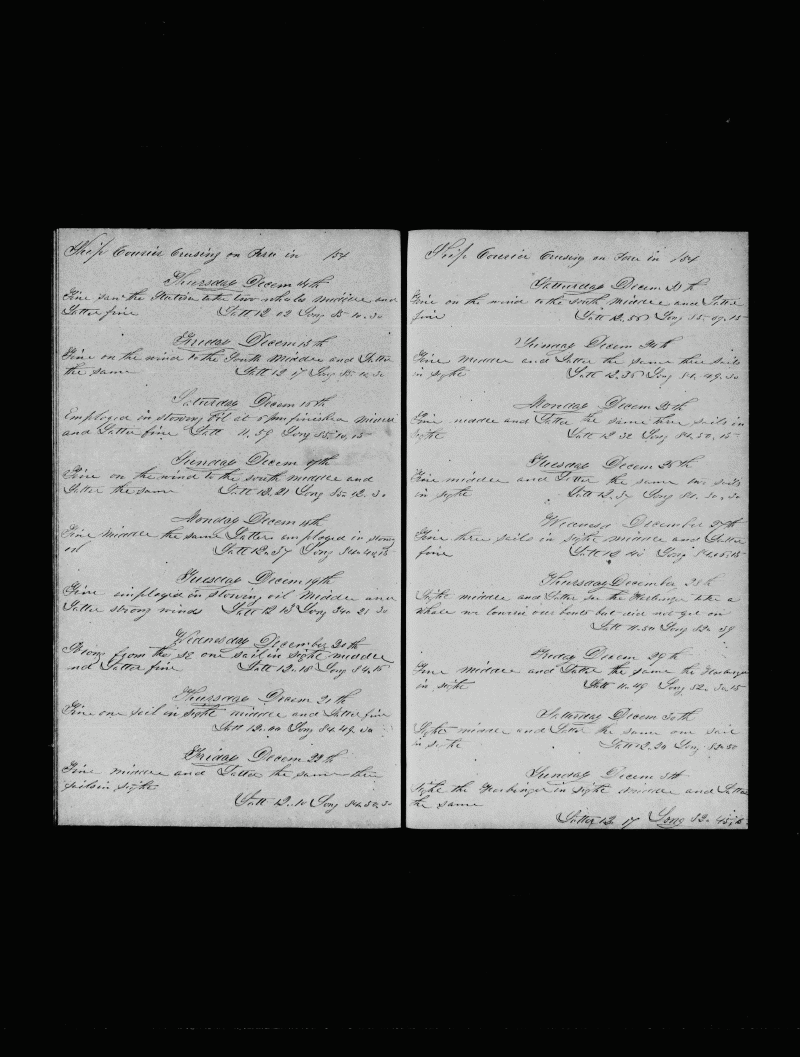 Ship Courier Crusing on in 184
Thursday Decem 14th
Fine saw the Station take two whales middle and
Latter fine Latt 12.02 Long 85.10.30
Friday Decem 15th
Fine on the wind to the South middle and Latter
the same Latt 12 17 Long 85.10.30
Saturday Decem 16th
Employed in stowing Oil at 5 pm finished middle
and Latter fine Latt 11.59 Long 85.10.15
Sunday Decem 17th
Fine on the wind to the south middle and
Latter the same Latt 12.21 Long 85.42.30
Monday Decem 18th
Fine middle the same Latter employed in stowing
oil Latt 12.37 Long
Tuesday Decem 19th
Fine employed in stowing oil middle and
Latter strong winds Latt 12 13 Long 21 30
Wednesday December 20th
Strong from the SE one sail in sight middle
nd Latter fine Latt 12.18 Long 84.15
Thursday Decem 21th
Fine one sail in sight middle and Latter fine
Latt 12.00 Long 84.49.30
Friday Decem 22th
Fine middle and Latter the same three
sails in sight
Latt 12.10 Long 84.50.30
Ship Courier Crusing on in 184
Satturday Decem 23th
Fine on the wind to the South middle and Latter
fine Latt 12.55 Long 85.09.15
Sunday Decem 24th
Fine middle and Latter the same three sails
in sight Latt 12.35 Long 84.49.30
Monday Decem 25th
Fine middle and Latter the same three sails in
sight Latt 12.32 Long 84.50.15
Tuesday Decem 26th
Fine middle and Latter the same two sails
in sight Latt 12.37 Long 84.30.30
Wednesd December 27th
Fine three sails in sight middle and Latter
fine Latt 12 Long
Thursday December 28th
Light middle and Latter the Harbinger take a
whale we Lowered our boats but did not get on
Latt 11.50 Long 82.39
Friday Decem 29th
Fine middle and Latter the same the Harbinger
in sight Latt 11.49 Long 52.30.15
Saturday Decem 30th
Light middle and Latter the same one sail
in sight Latt 12.20 Long
Sunday Decem 31th
Light the Harbinger in sight middle and Latter
the same
Latter 12.17 Long 82.45.15